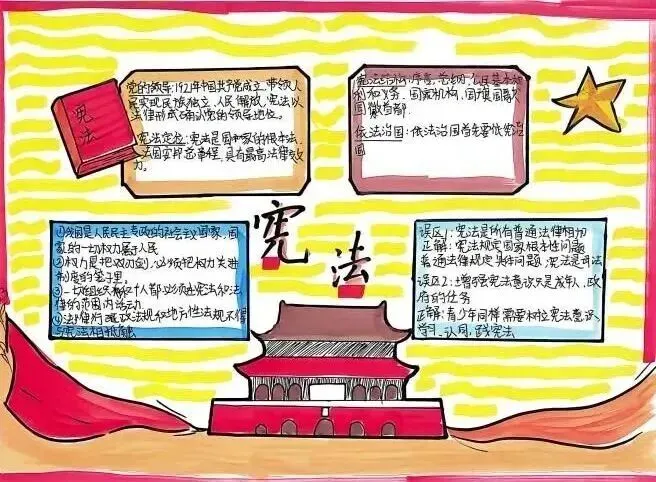 宪法
党的领导:1921年中国共产党成立,带领人
民实现民族独立、人民解放,宪法以
法律形式确认党的领导地位。
宪法定位:宪法是国家的根本法,
治国安邦总章程,具有最高法律效
力。
宪法结构:序言、总纲、公民基本权
利和义务、国家机构、国旗国歌
国徽首都.
依法治国:依法治国首先要依宪治
国
宪法
①我国是人民民主专政的社会主义国家,国
家的一切权力属于人民
②权力是把双刃剑,必须把权力关进
制度的笼子里。
③一切组织和个人都必须在宪法和法
律的范围内活动
④法律行政法规和地方性法规不得
与宪法相抵触
误区1:宪法是所有普通法律相加
正解:宪法规定国家根本性问题
普通法律规定具体问题,宪法是母法
误区2:增强宪法意识只是成年人、政
府的任务
正解:青少年同样需要树立宪法意识
学习、认同、践行宪法